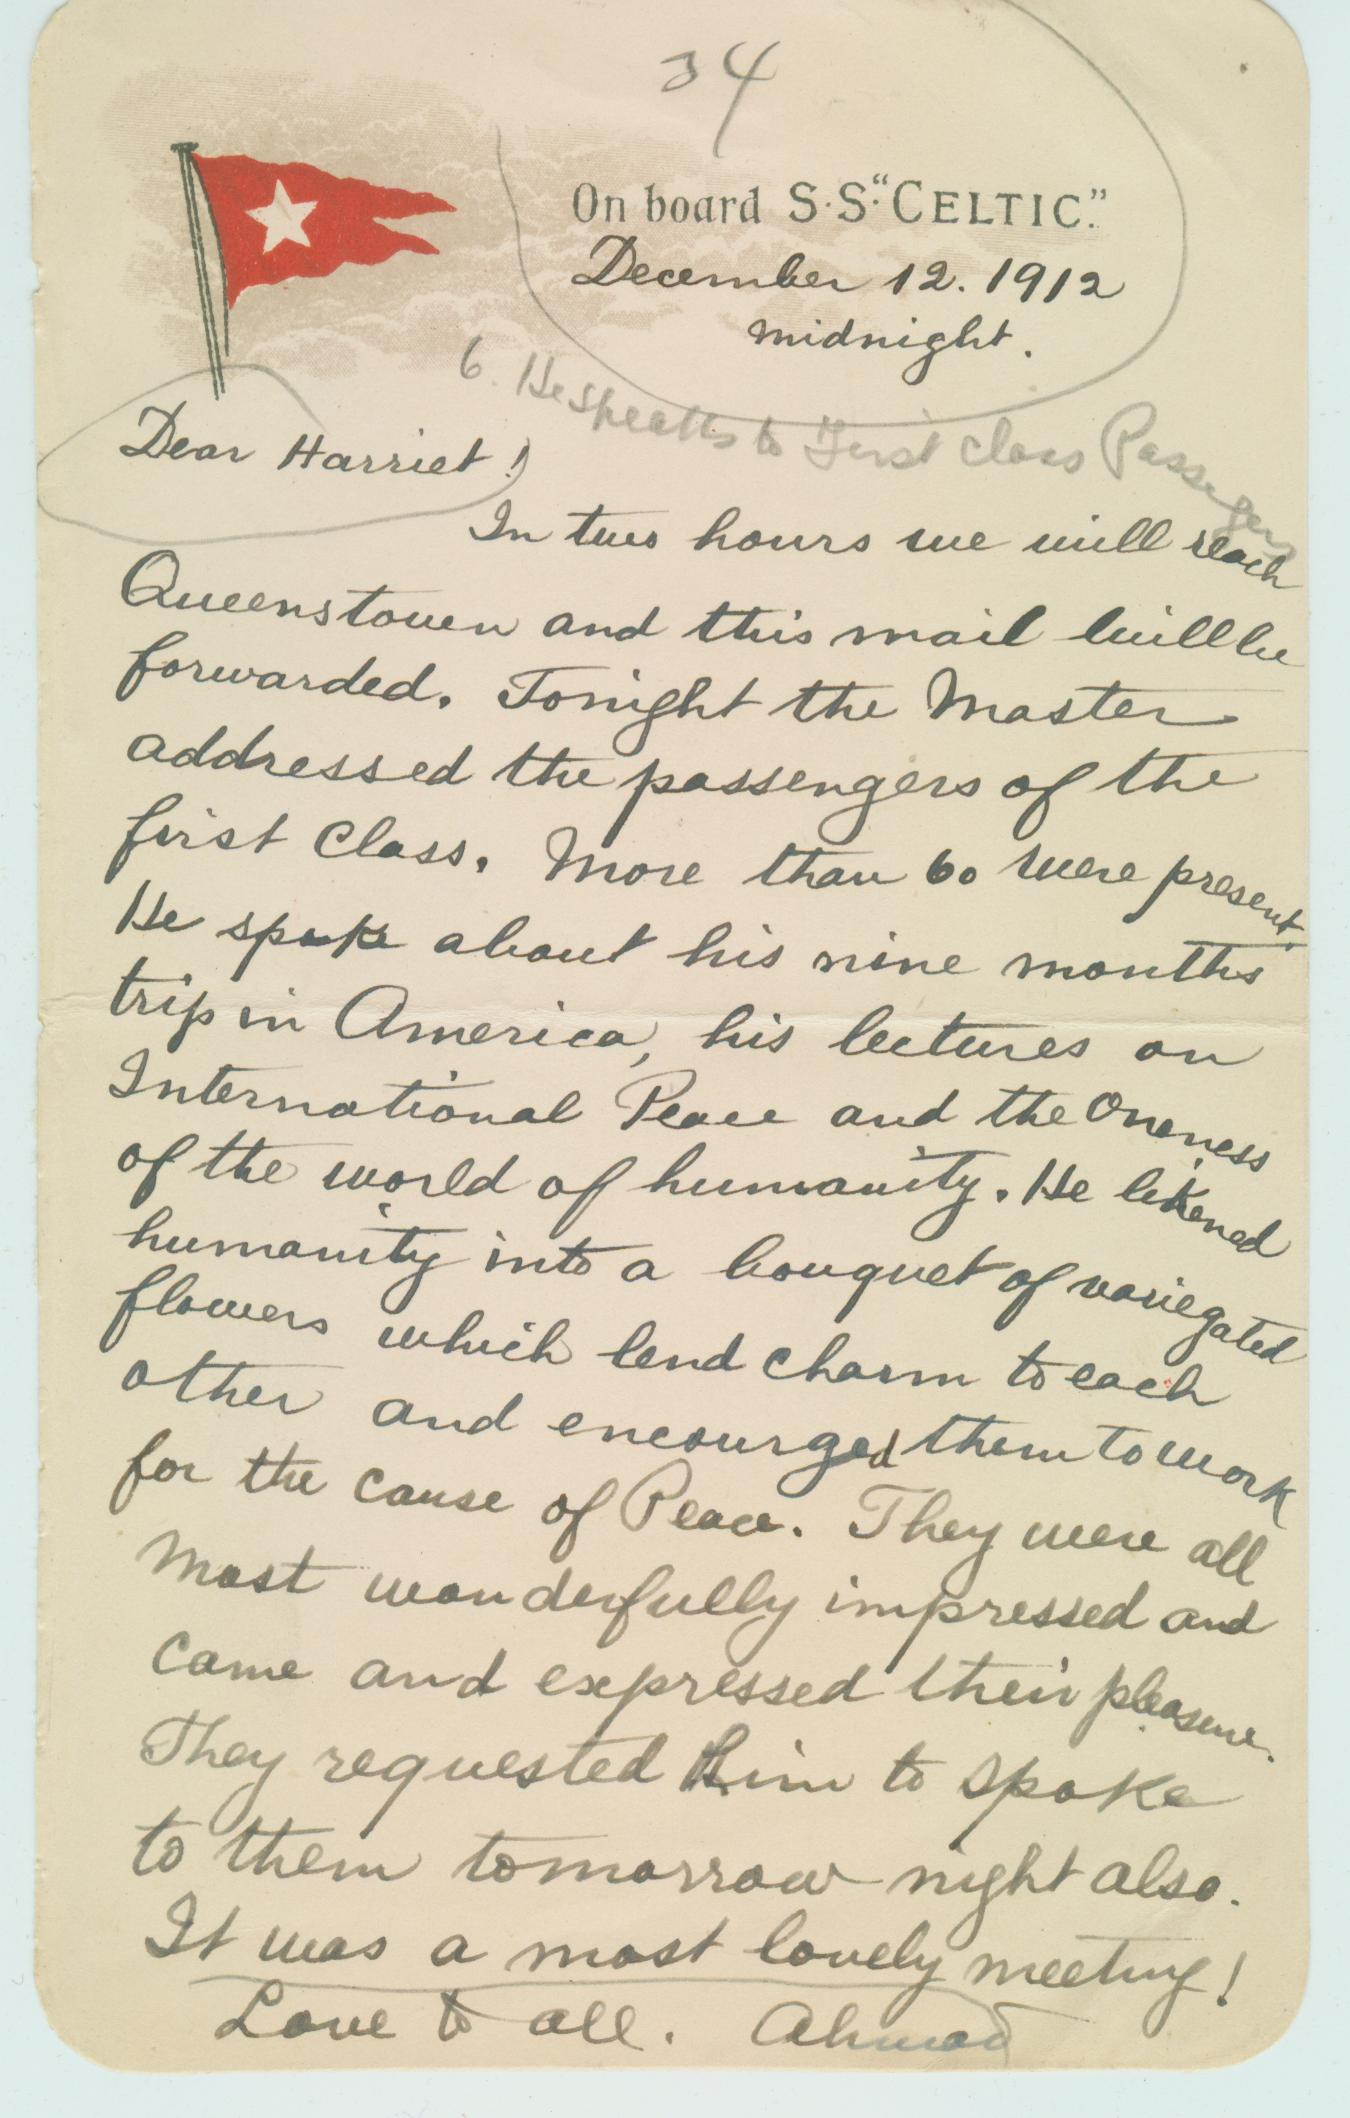 34
On board S·S·"CELTIC."
December 12. 1912
midnight.
6. He speaks to First Class Passengers
Dear Harriet!
In two hours we will reach
Queenstown and this mail will be
forwarded. Tonight the Master
addressed the passengers of the
first class. More than 60 were present.
He spoke about his nine months
trip in America, his lectures on
International Peace and the Oneness
of the world of humanity. He likened
humanity into a bouquet of variegated
flowers which lend charm to each
other and encourged them to work
for the cause of Peace. They were all
most wonderfully impressed and
came and expressed their pleasure.
They requested Him to spoke
to them tomorrow night also.
It was a most lovely meeting!
Love to all. Ahmad